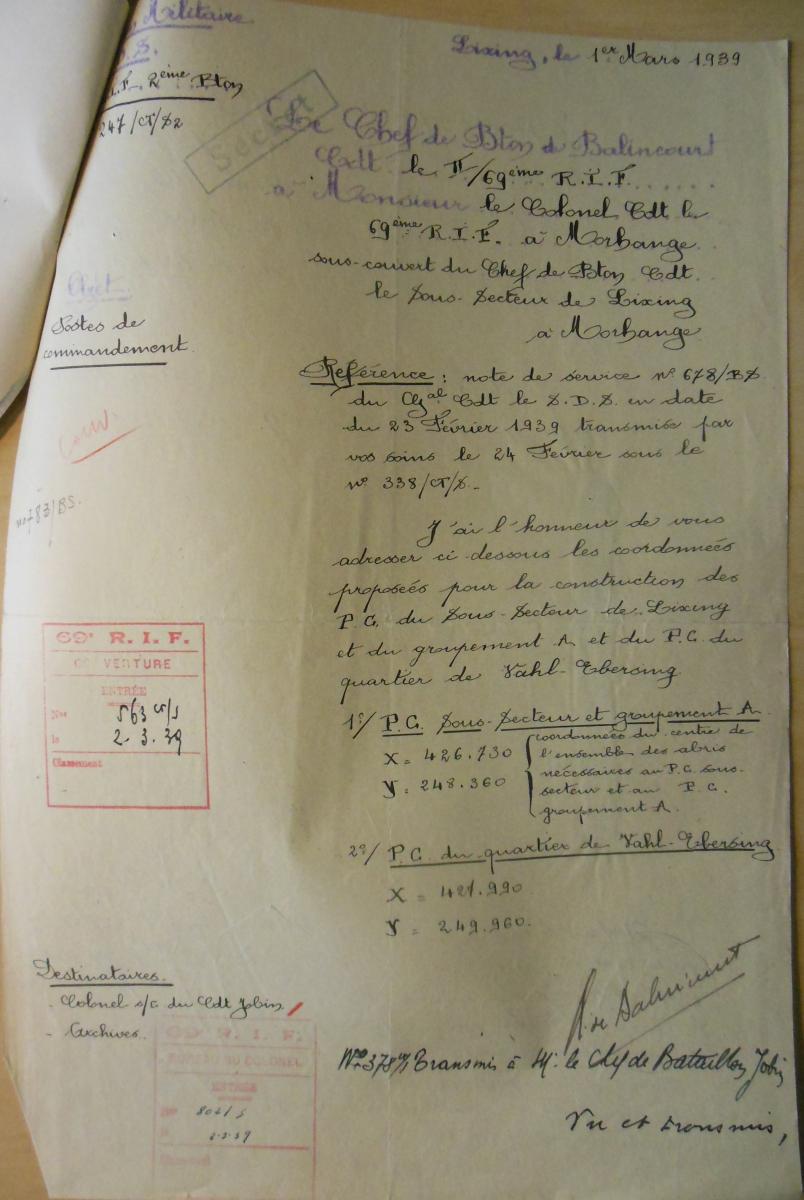 Militaire
S.
I.F. 2ème Bton
247/CT/S2
Lixing, le 1er Mars 1939
Secret
Le Chef de Bton de Balincourt
Cdt le II/69ème R.I.F.
à Monsieur le Colonel Cdt le
69ème R.I.F. à Morhange
sous-couvert du Chef de Bton Cdt
le Sous-Secteur de Lixing
à Morhange
Postes de
commandement
Couv.
n° 783/BS.
Référence : note de service n° 678/BS
du Gal Cdt le S.D.S. en date
du 23 Février 1939 transmise par
vos soins le 24 Février sous le
n° 338/CT/S.-
J'ai l'honneur de vous
adresser ci-dessous les coordonnées
proposées pour la construction des
P.C. du Sous-Secteur de Lixing
et du groupement A et du P.C. du
quartier de Vahl-Ebersing
69e R.I.F.
COUVERTURE
ENTRÉE
Nos 563 CT/S
le 2.3.39
Classement
1°/ P.C. Sous-Secteur et groupement A
X = 426.730
Y = 248.360
coordonnées du centre de
l'ensemble des abris
nécessaires au P.C. sous-
secteur et au P.C.
groupement A.
2°/ P.C. du quartier de Vahl-Ebersing
X = 427.990
Y = 249.960.
Destinataires.
- Colonel s/c du Cdt Jobin
- Archives.
R. de Balincourt
69e R.I.F.
BUREAU DU COLONEL
ENTRÉE
No 802/S
le 2-3-39
Classement
No 378 Transmis à M. le Chef de Bataillon Jobin
Vu et transmis,